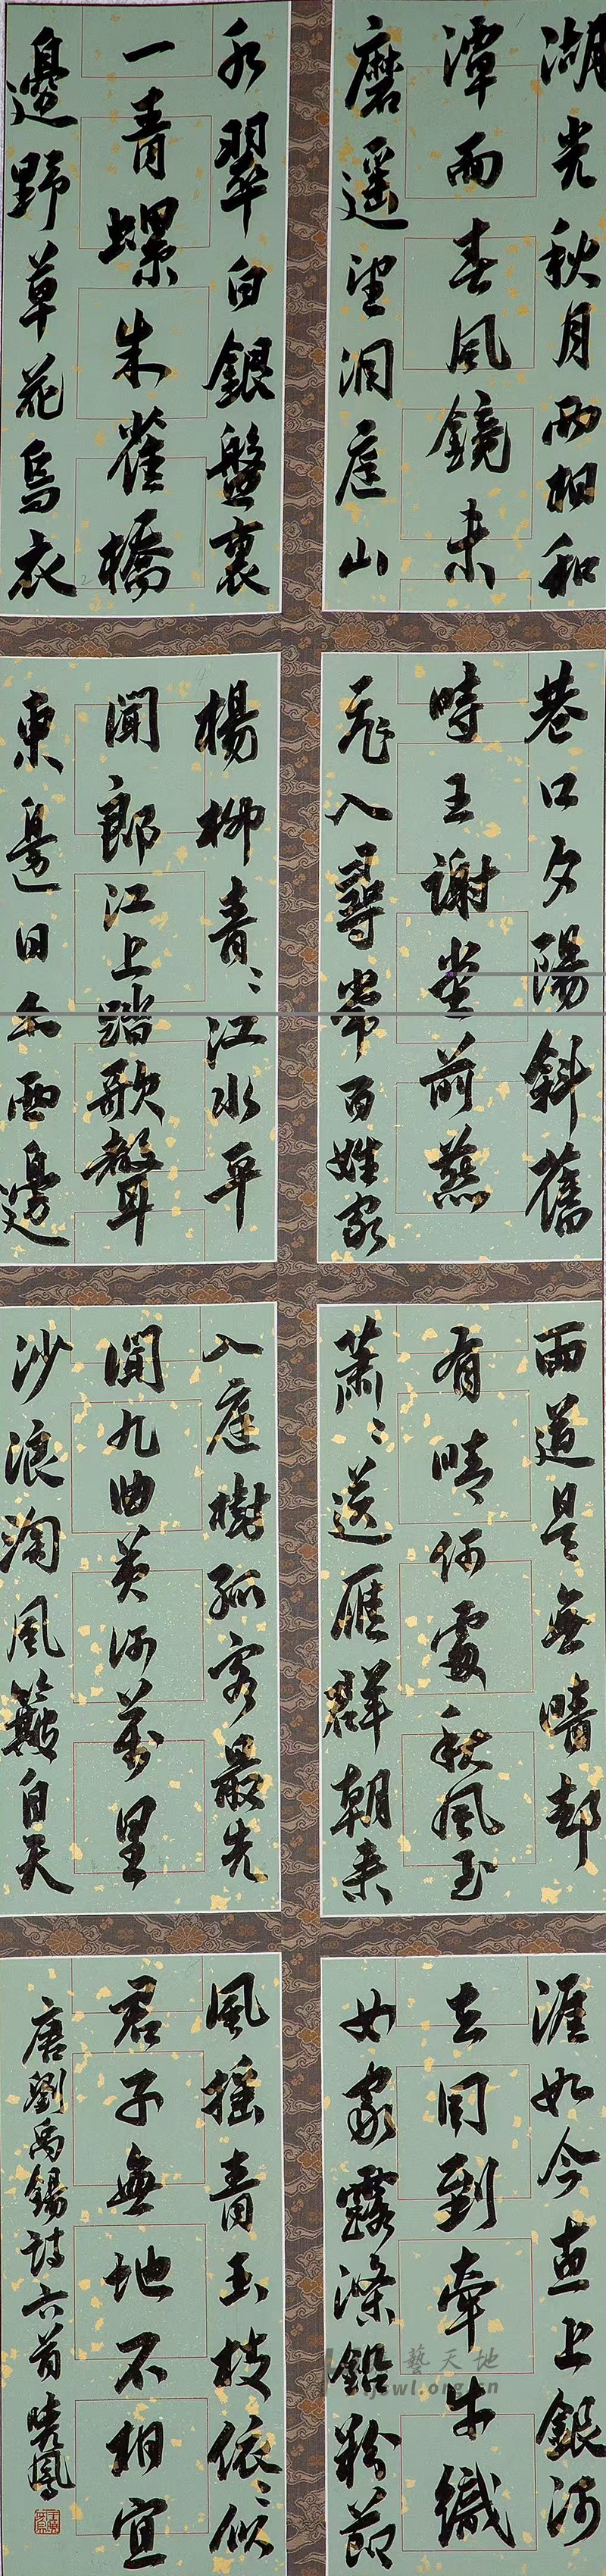 湖光秋月兩相和
潭面春風鏡未
磨遥望洞庭山
水翠白銀盤裏
一青螺朱雀橋
邊野草花烏衣
巷口夕陽斜舊
時王謝堂前燕
飛入尋常百姓家
楊柳青〻江水平
聞郎江上踏歌聲
東邊日出西邊
雨道是無晴却
有晴何處秋風至
蕭〻送雁群朝来
入庭樹孤客最先
聞九曲黃河萬里
沙浪淘風簸自天
涯如今直上銀河
去同到牽牛織
女家露滌鉛粉節
風摇青玉枝依〻似
君子無地不相宜
唐劉禹錫詩六首 曉鳳
藝天地